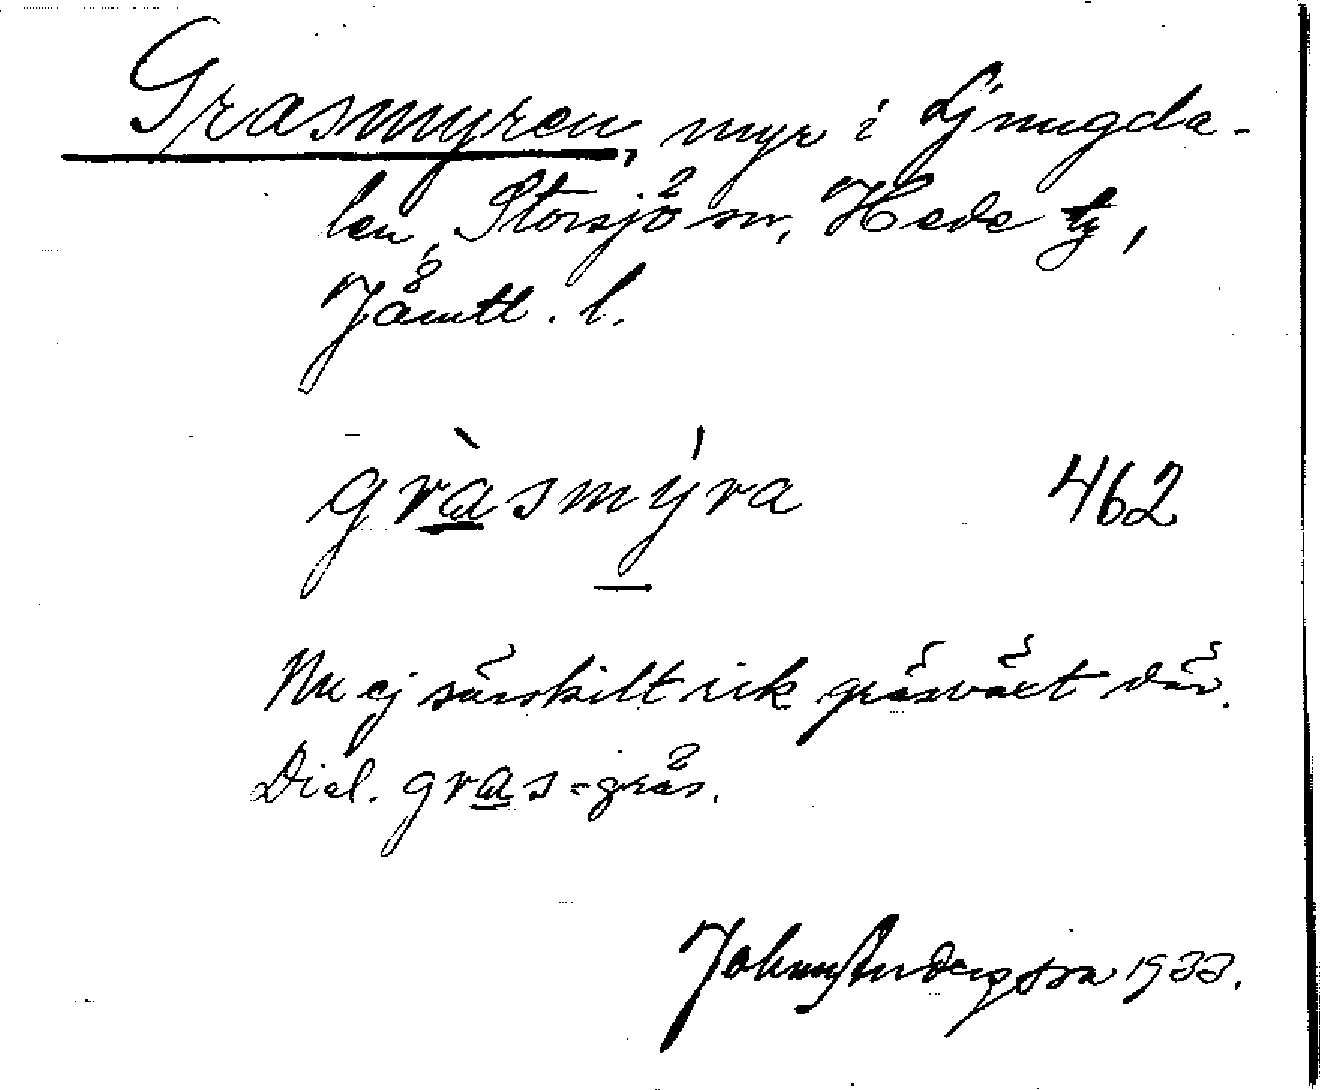 Grasmyren, myr i Ljungda-
len, Storsjö sn, Hede tg,
Jämtl. l.
gràsmýra 462
Nu ej särskilt rik gräsväxt där.
Dial. gras = gräs.
Johnny Andersson 1933.